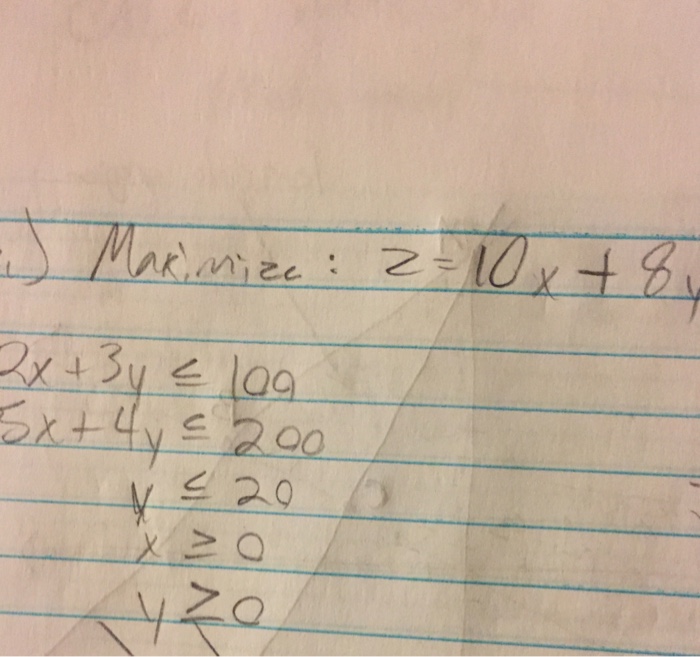 .) Maximize: z=10x+8y
2x+3y ≤ 100
5x+4y ≤ 200
y ≤ 20
x ≥ 0
y ≥ 0